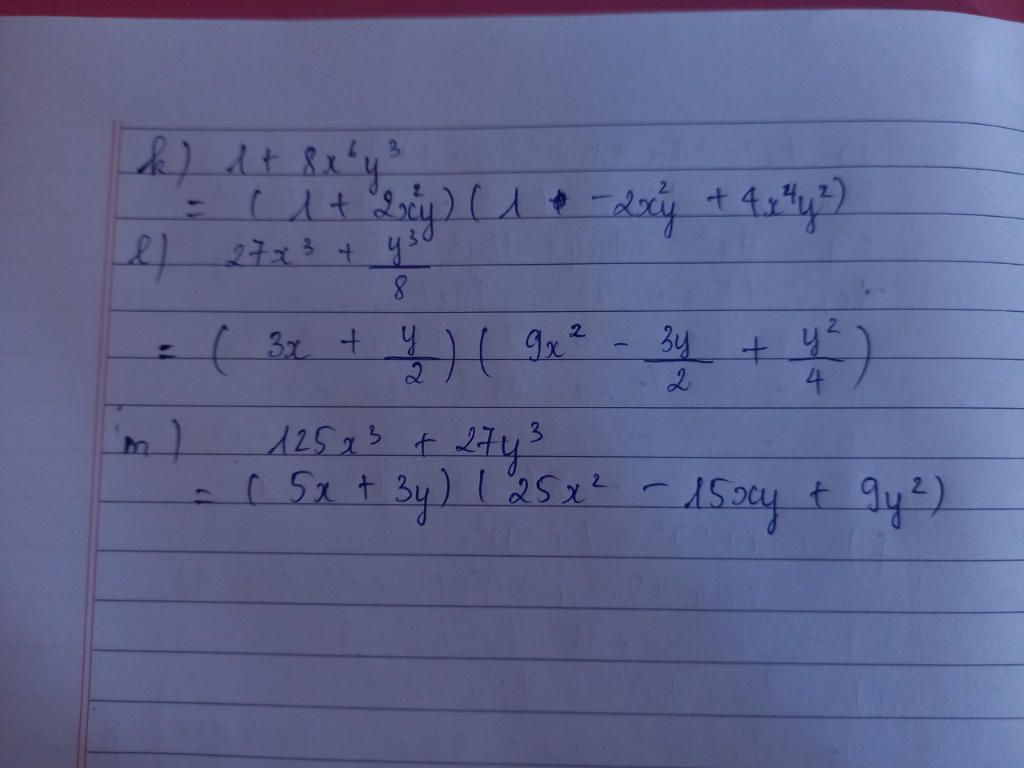 k) 1 + 8x⁶y³
= (1 + 2x²y)(1 - 2x²y + 4x⁴y²)
l) 27x³ + y³/8
= (3x + y/2)(9x² - 3y/2 + y²/4)
m) 125x³ + 27y³
= (5x + 3y)(25x² - 15xy + 9y²)